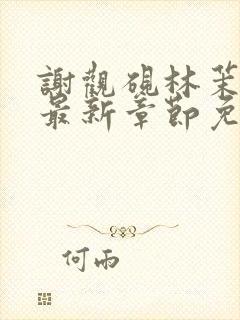 謝觀硯林茉
最新章節免
何雨